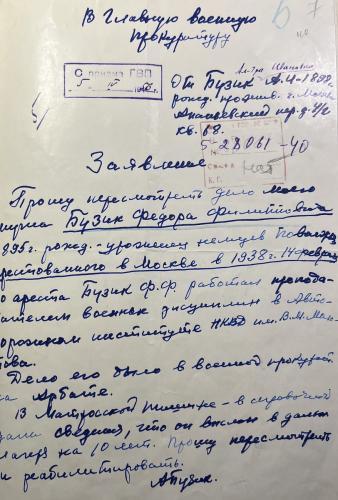 В Главную военную
прокуратуру
С приема ГВП
От Бузик А.И-1899
Ивановна
рожд. прожив. г. Москва
пер. д. 4/2
кв. 68.
5-28061-40
Заявление
Прошу пересмотреть дело моего
мужа Бузик Федора Филипповича
895 г. рожд-уроженец немцев Поволжья
рестованного в Москве в 1938 г. 14 феврал
о ареста Бузик Ф.Ф работал препода
ателем военных дисциплин в Авто
дорожном институте НКВД им. В.М. Моло
това.
Дело его было в военной прокурат
на Арбате.
В Матросской тишине - в справочной
дали сведения, что он выслан в дальн
лагеря на 10 лет. Прошу пересмотреть
и реабилитировать.
АБузик.